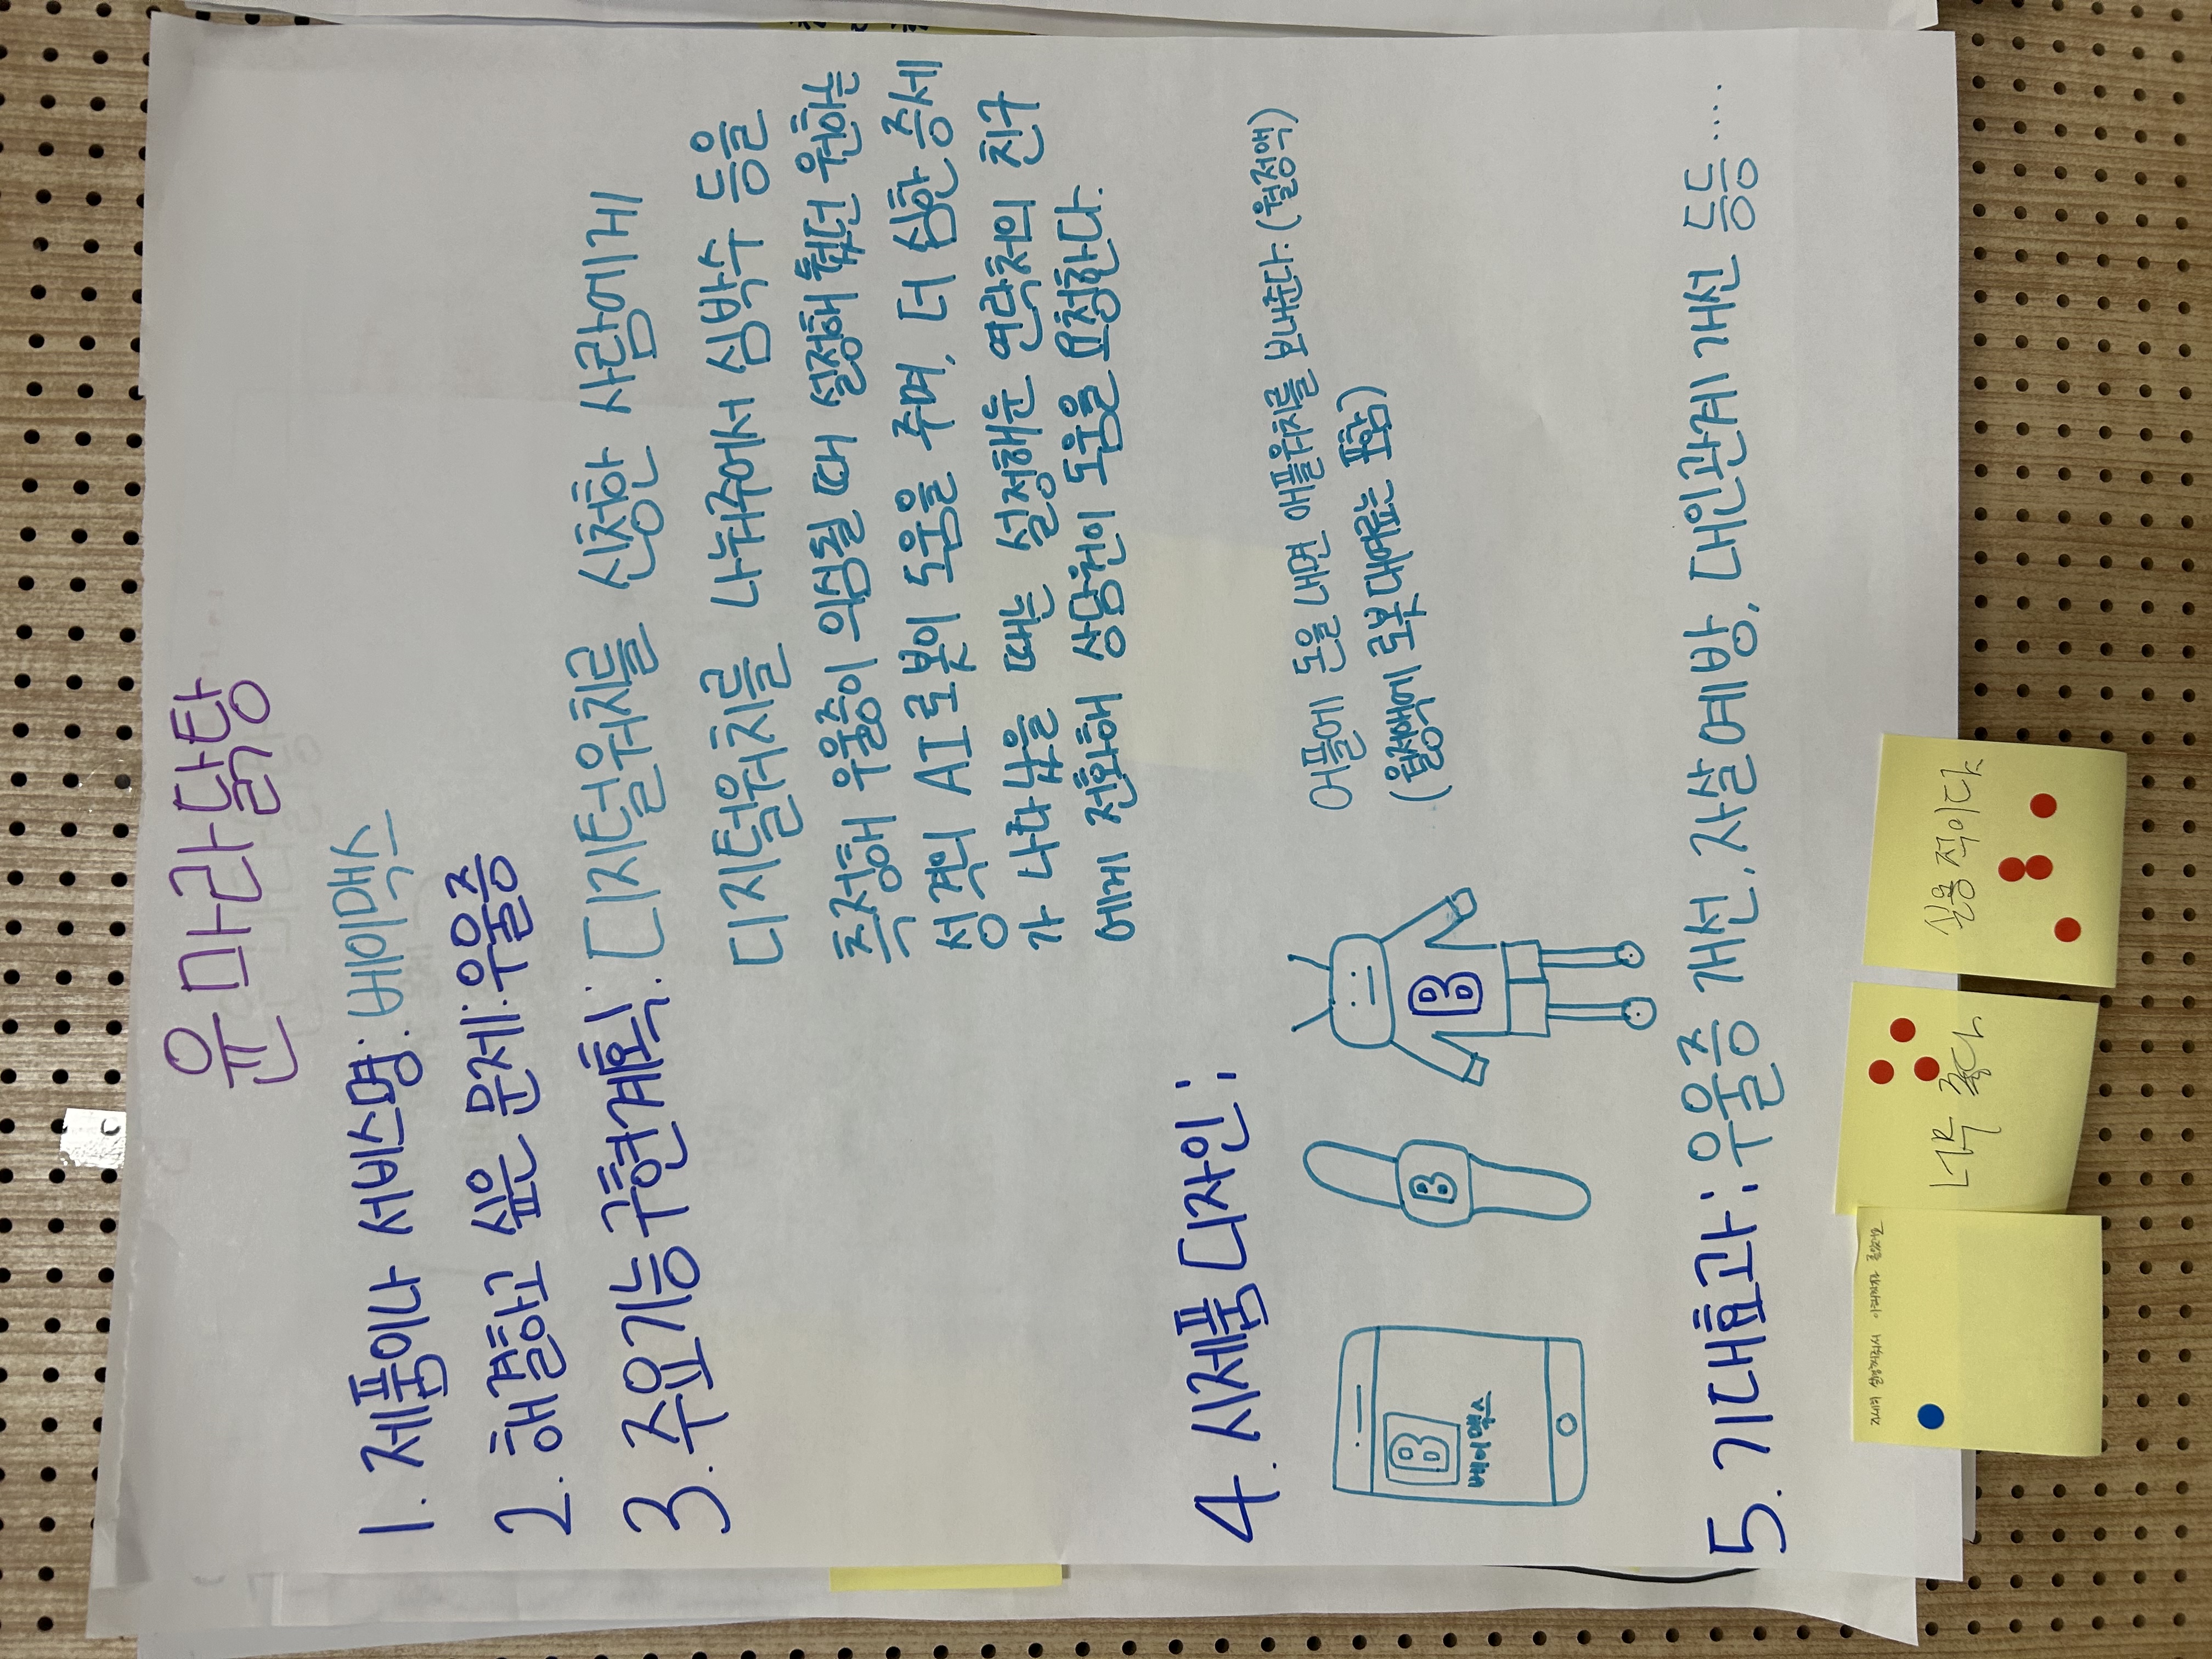 윤마라닭탕
1. 제품이나 서비스명: 베이맥스
2. 해결하고 싶은 문제: 우울증
3. 주요기능 구현계획: 디지털워치를 신청한 사람에게
디지털워치를 나눠주어서 심박수 등을
측정해 우울증이 의심될 때 설정해 뒀던 원하는
성격의 AI로봇이 도움을 주며, 더 심한 증세
가 나타났을 때는 설정해둔 연락처의 친구
에게 전화해 상담원이 도움을 요청한다.
4. 시제품 디자인:
B
베이맥스
B
B
어플에 돈을 내면 애플워치를 보내준다. (월정액)
(월정액에 로봇대여료는 포함)
5. 기대효과: 우울증 개선, 자살예방, 대인관계 개선 등등.....
너무 좋다
실용적이다